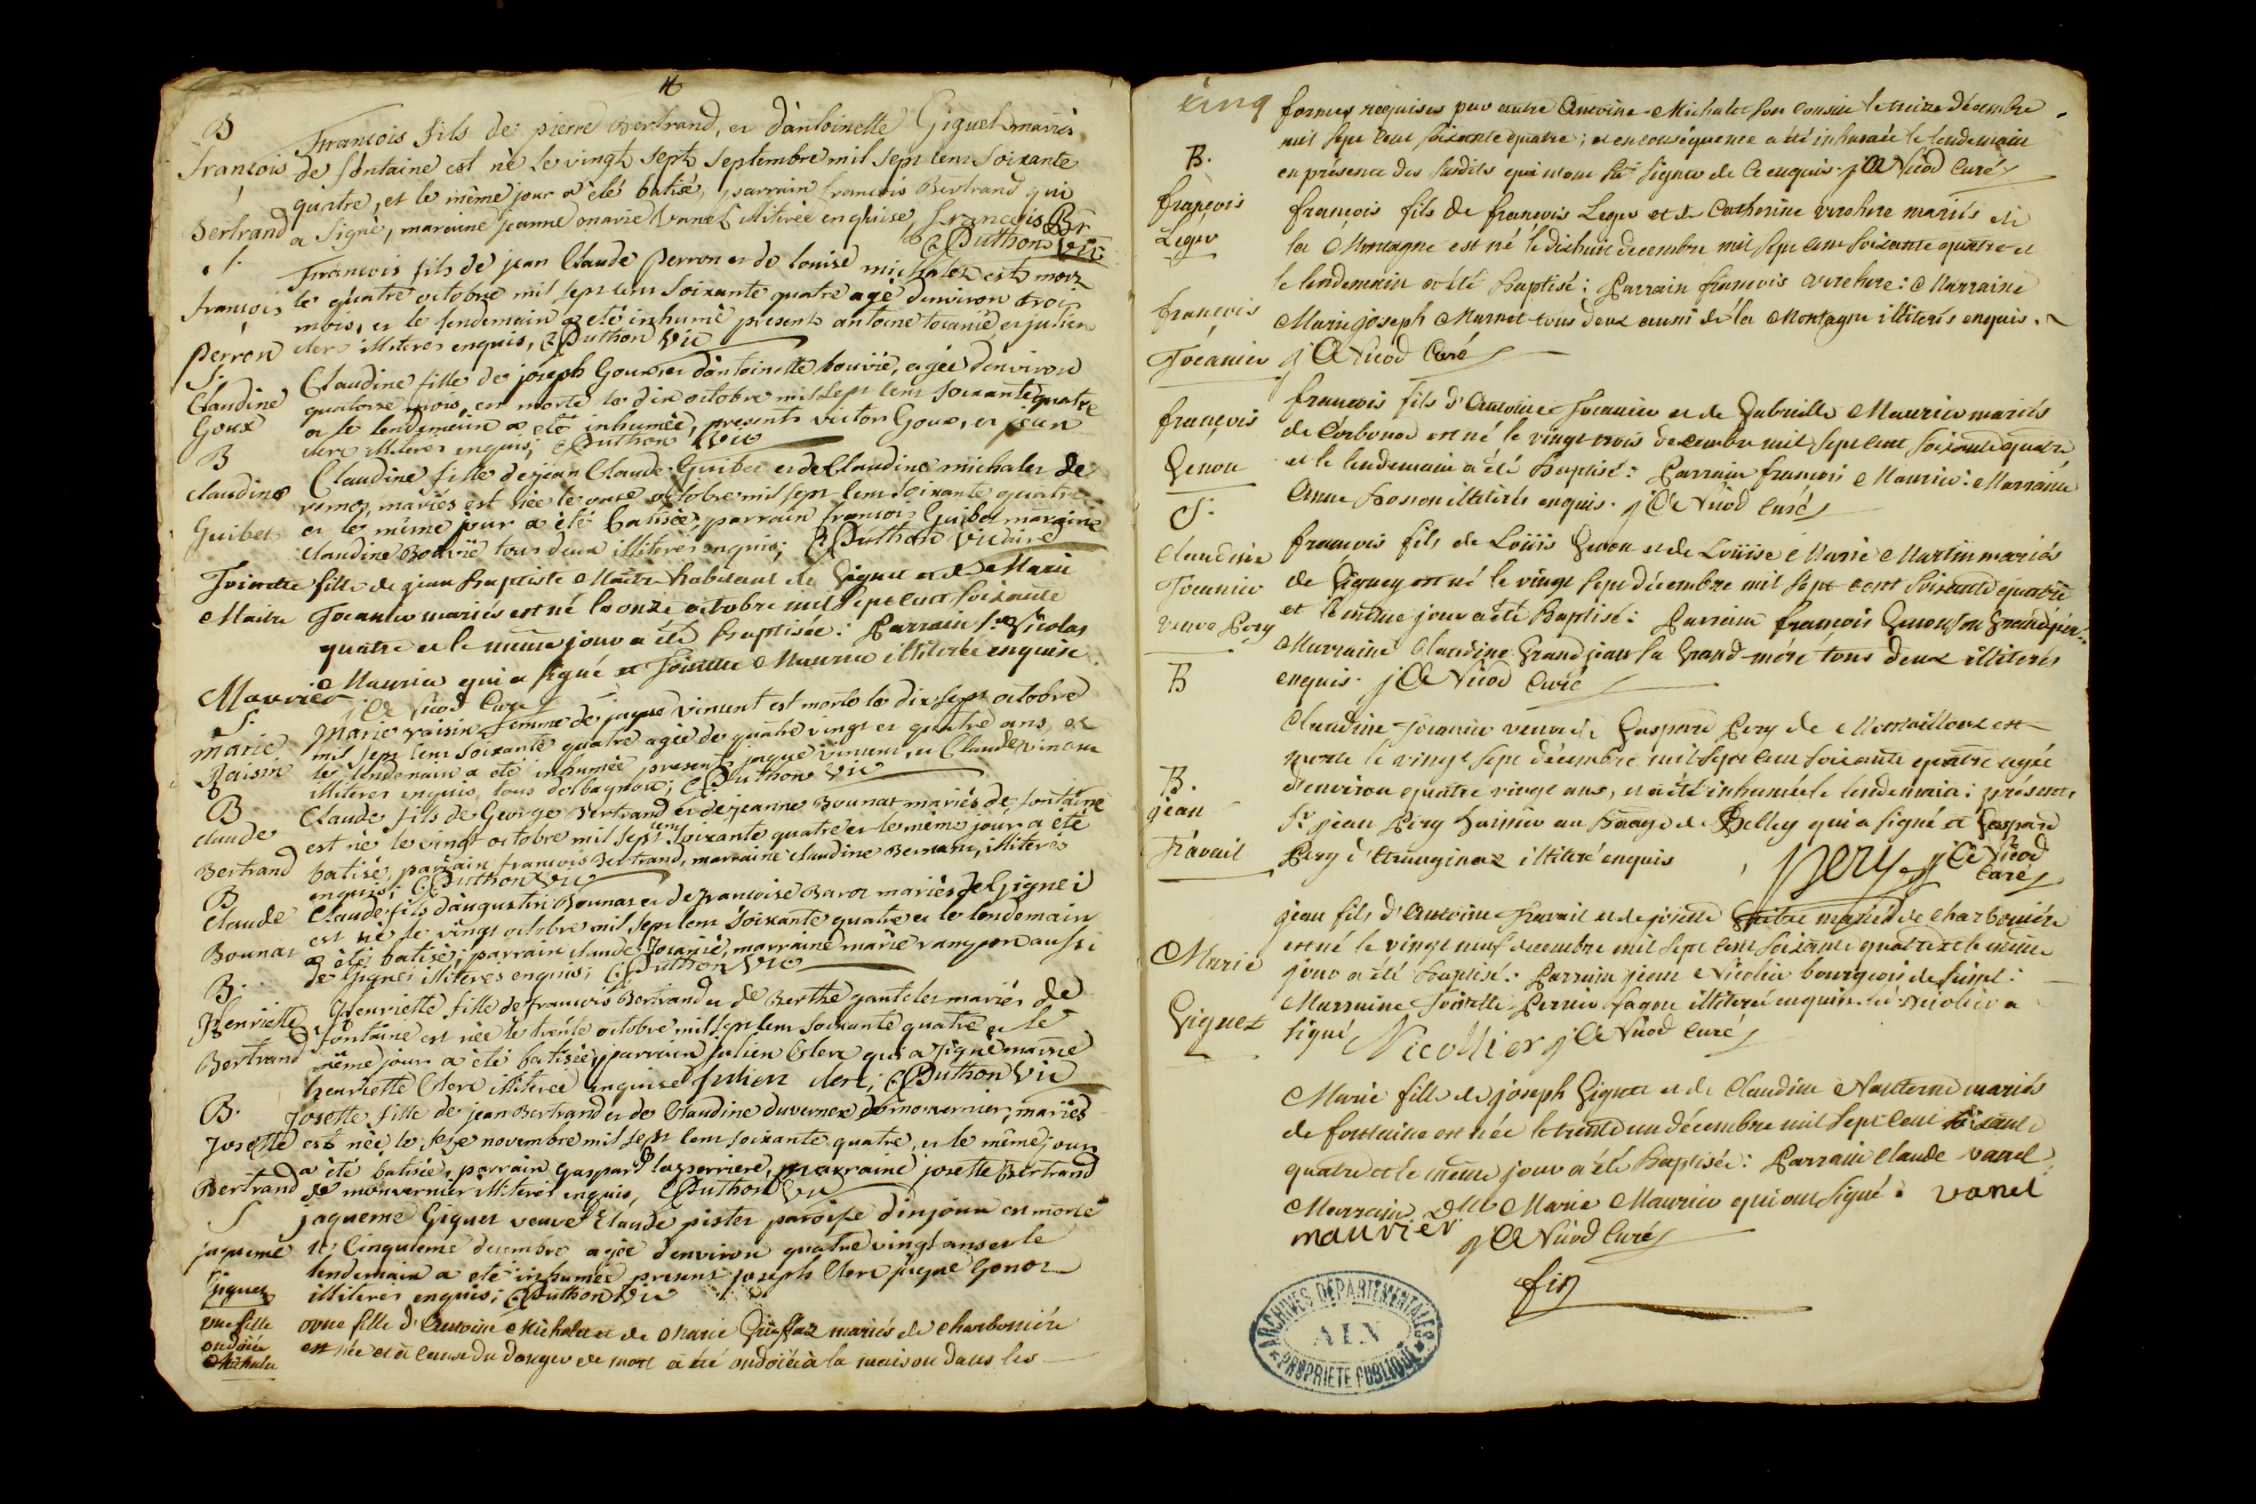 B
françois
Bertrand
François fils de pierre Bertrand, et d'antoinette Giguet mariés
de fontaine est né le vingt sept septembre mil sept cent soixante
quatre, et le même jour a été batisé, parrain francois Bertrand qui
a signé, maraine jeanne marie vanel illiterée enquise francois Br
C Duthon Vic
S.
françois
perron
François fils de jean Claude perron et de louise michalet est mort
le quatre octobre mil sept cent soixante quatre agé d'environ trois
mois, et le lendemain a eté inhumé presents antoine tocanié et julien
clerc illiterés enquis, C Duthon Vic
S.
Claudine
Goux
Claudine fille de joseph Goux et d'antoinette bouvié, agée d'environ
quatorse mois, est morte le dix octobre mil sept cent soixante quatre
et le lendemain a eté inhumée, presents victor Goux, et jean
clerc illiterés enquis; C Duthon Vic
B
claudine
Guibet
Claudine fille de jean Claude Guibet et de Claudine michalet de
mariés est née le onse octobre mil sept cent soixante quatre
et le même jour a été batisée, parrain françois Guibet maraine
claudine Bouvié tous deux illiterés enquis; C Duthon Vicaire
Toinette
Maitre
fille de jean baptiste Maitre habitant de Gignez et de Marie
Tocanier mariés est né le onze octobre mil sept cent soixante
quatre et le meme jour a été baptisée: Parrain Sr Nicolas
Maurier qui a signé et Toinette Maurier illiterée enquise
Maurier
j C Nicod Curé
S.
marie
Raisin
Marie raisin femme de jaque vincent est morte le dix sept octobre
mil sept cent soixante quatre agée de quatre vingt et quatre ans, et
le lendemain a eté inhumée presents jaque vincent, et Claude vincent
illiterés enquis, tous de bagnou; C Duthon Vic
B.
claude
Bertrand
Claude fils de George Bertrand et de jeanne Bounat mariés de fontaine
est né le vingt octobre mil sept cent soixante quatre et le même jour a été
batisé, parrain francois Bertrand, marraine claudine illiterés
enquis; C Duthon Vic
B
claude
Bounat
Claude fils d'augustin Bounat et de francoise Baroz mariés de Gignei
est né le vingt octobre mil sept cent soixante quatre et le lendemain
a été batisé; parrain claude Tocanié, marraine marie aussi
de Gignei illiterés enquis; C Duthon Vic
B.
Henriette
Bertrand
Henriette fille de francois Bertrand et de Berthe gantelet mariés de
fontaine est née le trente octobre mil sept cent soixante quatre et le
même jour a été batisée, parrain julien Clerc qui a signé marraine
henriette Clerc illiterée enquise julien clerc; C Duthon Vic
B.
Josette
Bertrand
Josette fille de jean Bertrand et de Claudine duvernex de monvernier, mariés
est née le sese novembre mil sept cent soixante quatre, et le même jour
a été batisée, parrain Gaspard laperriere, marraine josette Bertrand
de monvernier illiterés enquis, C Duthon Vic
S
jaqueme
Giguet
jaqueme Giguet veuve Claude pistet paroisse d'injoux est morte
le Cinquieme decembre agée d'environ quatre vingt ans et le
lendemain a eté inhumée presents joseph Clerc jaque Gonoz
illiterés enquis; C Duthon Vic
une fille
ondoiée
Michalet
une fille d'Antoine Michalet et de Marie mariés de charbonière
est née et à cause du danger de mort a été ondoiée à la maison dans les
cinq
formes requises par autre Antoine Michalet son cousin le treize décembre
mil sept cent soixante quatre; et en conséquence a été inhumée le lendemain
en présence des susdits qui n'ont sçu signer de ce enquis. j C Nicod Curé
B.
françois
Leger
françois fils de françois Leger et de Catherine mariés de
la Montagne est né le dixhuit decembre mil sept cent soixante quatre et
le lendemain a été baptisé: Parrain francois Marraine
Marie joseph Marnet tous deux aussi de la Montagne illiterés enquis.
j C Nicod Curé
françois
Tocanier
françois fils d'Antoine Tocanier et de Gabrielle Maurier mariés
de Corbonod est né le vingt trois decembre mil sept cent soixante quatre
et le lendemain a été baptisé: Parrain françois Maurier: Marraine
Anne Bosson illiterés enquis. j C Nicod Curé
françois
Genou
françois fils de Loüis Genou et de Loüise Marie Martin mariés
de Gigney est né le vingt sept décembre mil sept cent soixante quatre
et le même jour a été baptisé: Parrain françois Genou son Grand père
Marraine Claudine Grandjean sa Grand-mère tous deux illiterés
enquis. j C Nicod Curé
S.
Claudine
Tocanier
veuve Péry
Claudine Tocanier veuve de Gaspard Pery de est
morte le vingt sept décembre mil sept cent soixante quatre agée
d'environ quatre vingt ans, et a été inhumée le lendemain: présents
Sr jean Pery huissier au Bailliage de Belley qui a signé et Gaspard
Pery d'Etranginaz illiteré enquis
Pery j C Nicod
Curé
B
B.
jean
Travail
jean fils d'Antoine Travail et de josette Guibet mariés de charbonière
est né le vingt neuf decembre mil sept cent soixante quatre et le même
jour a été baptisé: Parrain jean Nicolier bourgeois de
Marraine Toinette Perrier illiterée enquise. led. Nicolier a
signé Nicollier j C Nicod Curé
Marie
Giguet
Marie fille de joseph Giguet et de Claudine mariés
de fontaine est née le trente un décembre mil sept cent soixante
quatre et le même jour a été baptisée: Parrain claude vanel
Marraine Dlle Marie Maurier qui ont signé: vanel
mauvrier j C Nicod Curé
fin
ARCHIVES DEPARTEMENTALES
AIN
PROPRIETE PUBLIQUE